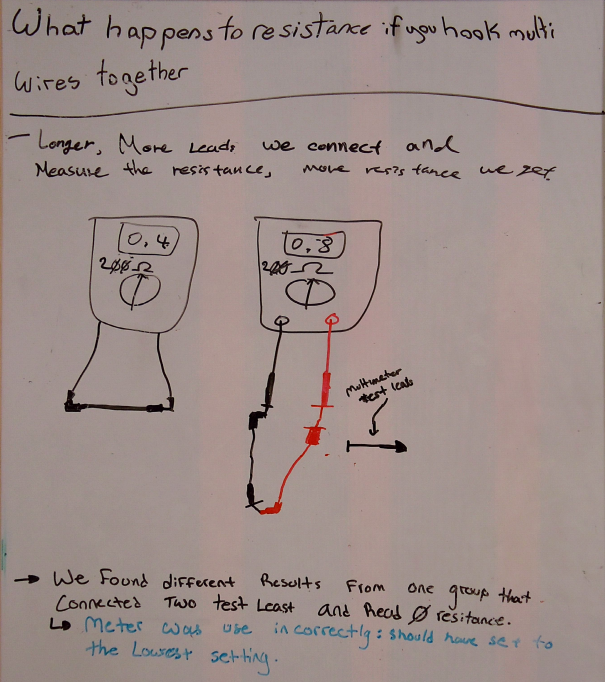 What happens to resistance if you hook multi
wires together
- Longer, More Leads we connect and
Measure the resistance, more resistance we get.
0.4
200Ω
0.8
200Ω
multimeter
test leads
→ We Found different Results From one group that
Connected Two test Least and Read Ø resitance.
↳ Meter was use incorrectly: should have set to
the Lowest setting.